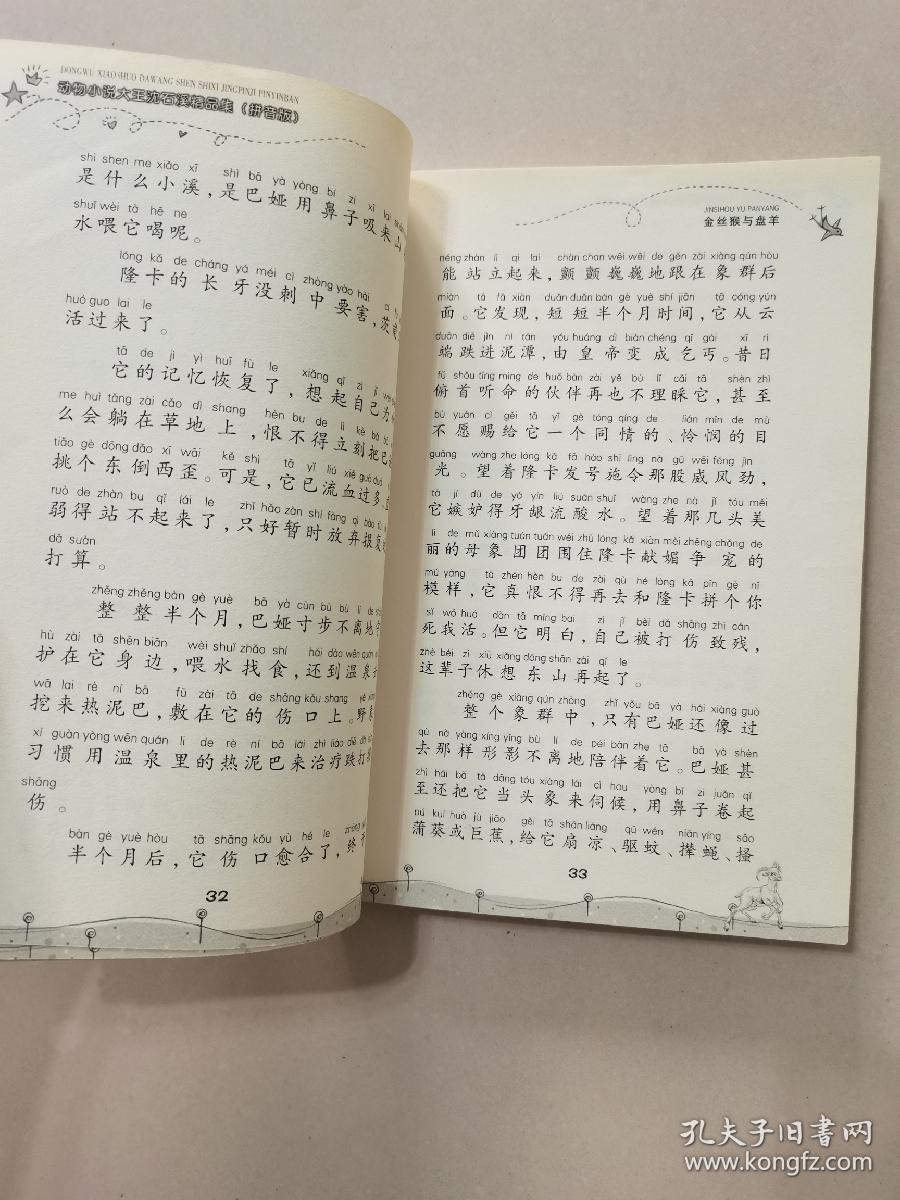 DONGWU XIAOSHUO DAWANG SHEN SHIXI JINGPINJI PINYINBAN
动物小说大王沈石溪精品集（拼音版）
shì shén me xiǎo xī shì bā yà yòng bí zi xī lai
是什么小溪，是巴娅用鼻子吸来山
shuǐ wèi tā hē ne
水喂它喝呢。
lóng kǎ de cháng yá méi cì zhòng yào hài
隆卡的长牙没刺中要害，茨
huó guo lai le
活过来了。
tā de jì yì huī fù le xiǎng qǐ zì jǐ
它的记忆恢复了，想起自己为
me huì tǎng zài cǎo dì shang hèn bu de lì kè bǎ
么会躺在草地上，恨不得立刻把
tiǎo gè dōng dǎo xī wāi kě shì tā yǐ liú xiě guò duō
挑个东倒西歪。可是，它已流血过多，
ruò de zhàn bu qǐ lái le zhǐ hǎo zàn shí fàng qì bào fù
弱得站不起来了，只好暂时放弃报复
dǎ suàn
打算。
zhěng zhěng bàn gè yuè bā yà cùn bù bù lí de
整整半个月，巴娅寸步不离地守
hù zài tā shēn biān wèi shuǐ zhǎo shí hái dào wēn quán
护在它身边，喂水找食，还到温泉
wā lai rè ní bā fū zài tā de shāng kǒu shang yě
挖来热泥巴，敷在它的伤口上。野
xí guàn yòng wēn quán li de rè ní bā lái zhì liáo diē dǎ
习惯用温泉里的热泥巴来治疗跌打
shāng
伤。
bàn gè yuè hòu tā shāng kǒu yù hé le zhōng
半个月后，它伤口愈合了，终
32
JINSIHOU YU PANYANG
金丝猴与盘羊
néng zhàn lì qi lai chàn chan wēi wēi de gēn zài xiàng qún hòu
能站立起来，颤颤巍巍地跟在象群后
miàn tā fā xiàn duǎn duǎn bàn gè yuè shí jiān tā cóng yún
面。它发现，短短半个月时间，它从云
duān diē jìn ní tán yóu huáng dì biàn chéng qǐ gài xī rì
端跌进泥潭，由皇帝变成乞丐。昔日
fǔ shǒu tīng mìng de huǒ bàn zài yě bù lǐ cǎi tā shèn zhì
俯首听命的伙伴再也不理睬它，甚至
bù yuàn cì gěi tā yī gè tóng qíng de lián mǐn de mù
不愿赐给它一个同情的、怜悯的目
guāng wàng zhe lóng kǎ fā hào shī lìng nà gǔ wēi fēng jìn
光。望着隆卡发号施令那股威风劲，
tā jí dù de yá yín liú suān shuǐ wàng zhe nà jǐ tóu měi
它嫉妒得牙龈流酸水。望着那几头美
lì de mǔ xiàng tuán tuán wéi zhù lóng kǎ xiàn mèi zhēng chǒng de
丽的母象团团围住隆卡献媚争宠的
mú yàng tā zhēn hèn bu de zài qù hé lóng kǎ pīn gè nǐ
模样，它真恨不得再去和隆卡拼个你
sǐ wǒ huó dàn tā míng bai zì jǐ bèi dǎ shāng zhì cán
死我活。但它明白，自己被打伤致残，
zhè bèi zi xiū xiǎng dōng shān zài qǐ le
这辈子休想东山再起了。
zhěng gè xiàng qún zhōng zhǐ yǒu bā yà hái xiàng guò
整个象群中，只有巴娅还像过
qù nà yàng xíng yǐng bù lí de péi bàn zhe tā bā yà shèn
去那样形影不离地陪伴着它。巴娅甚
zhì hái bǎ tā dàng tóu xiàng lái cì hou yòng bí zi juǎn qǐ
至还把它当头象来伺候，用鼻子卷起
pú kuí huò jù jiāo gěi tā shān liáng qū wén niǎn yíng sāo
蒲葵或巨蕉，给它扇凉、驱蚊、撵蝇、搔
33
孔夫子旧书网
www.kongfz.com